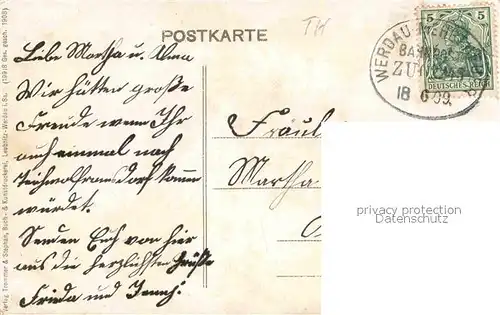 POSTKARTE
TH
Liebe Martha u. Anna
Wir hätten große
Freude wenn Ihr
auch einmal nach
Teichwolframsdorf kommen
würdet.
Senden Euch von hier
aus die herzlichsten Grüße
Frieda und
Fräul
Martha
WERDAU
BAHNPOST
ZUG
18 6 09
5 5
DEUTSCHES REICH
privacy protection
Datenschutz
Verlag Trommer & Stephan, Buch- & Kunstdruckerei, Leubnitz-Werdau i. Sa. (1993 Ges. gesch. 1908)